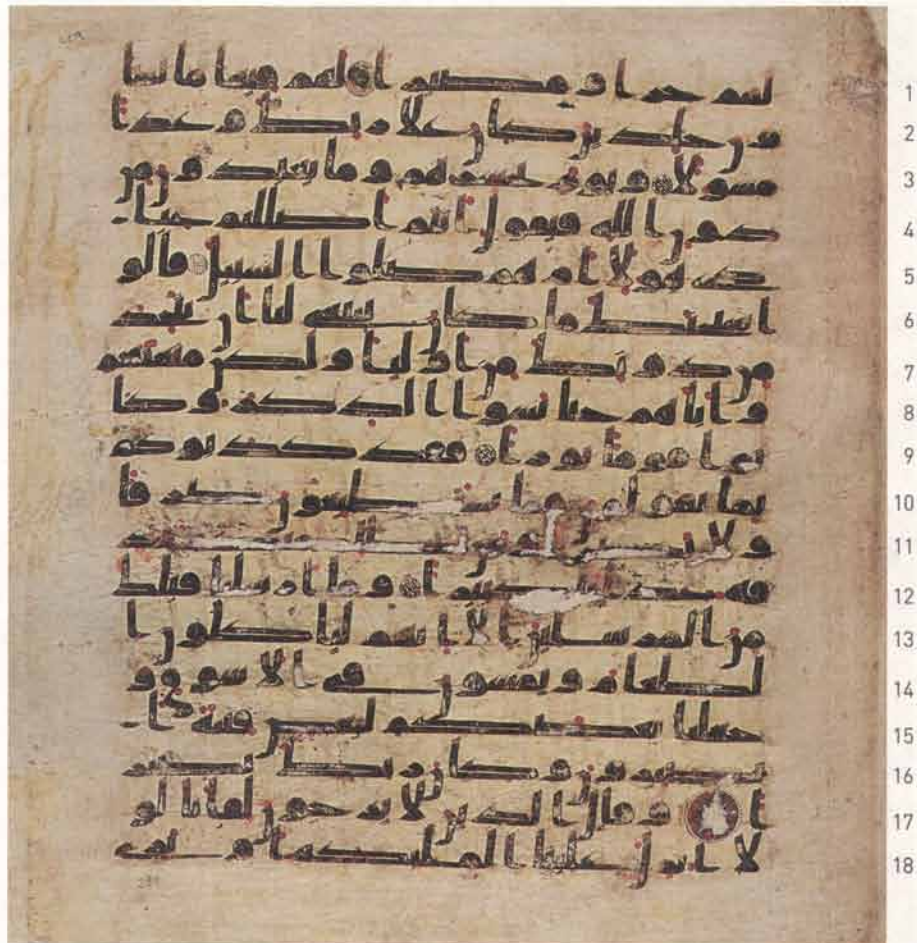 لهم جزا ومصيرا لهم فيها ما يشا 1
ون خلدين كان على ربك وعدا 2
مسولا ويوم يحشرهم وما يعبدون من 3
دون الله فيقول انتم اضللتم عبا 4
دي هولا ام هم ضلوا السبيل قالو 5
ا سبحنك ما كان ينبغي لنا ان نتخذ 6
من دونك من اوليا ولكن متعتهم 7
واباهم حتى نسوا الذكر وكا 8
نوا قوما بورا فقد كذبوكم 9
بما تقولون فما تستطيعون صرفا 10
ولا نصرا ومن يظلم منكم 11
نذقه عذابا كبيرا وما ارسلنا قبلك 12
من المرسلين الا انهم لياكلون ا 13
لطعام ويمشون في الاسوق و 14
جعلنا بعضكم لبعض فتنة ا 15
تصبرون وكان ربك بصير 16
ا وقال الذين لا يرجون لقانا لو 17
لا انزل علينا الملئكة او نرى 18